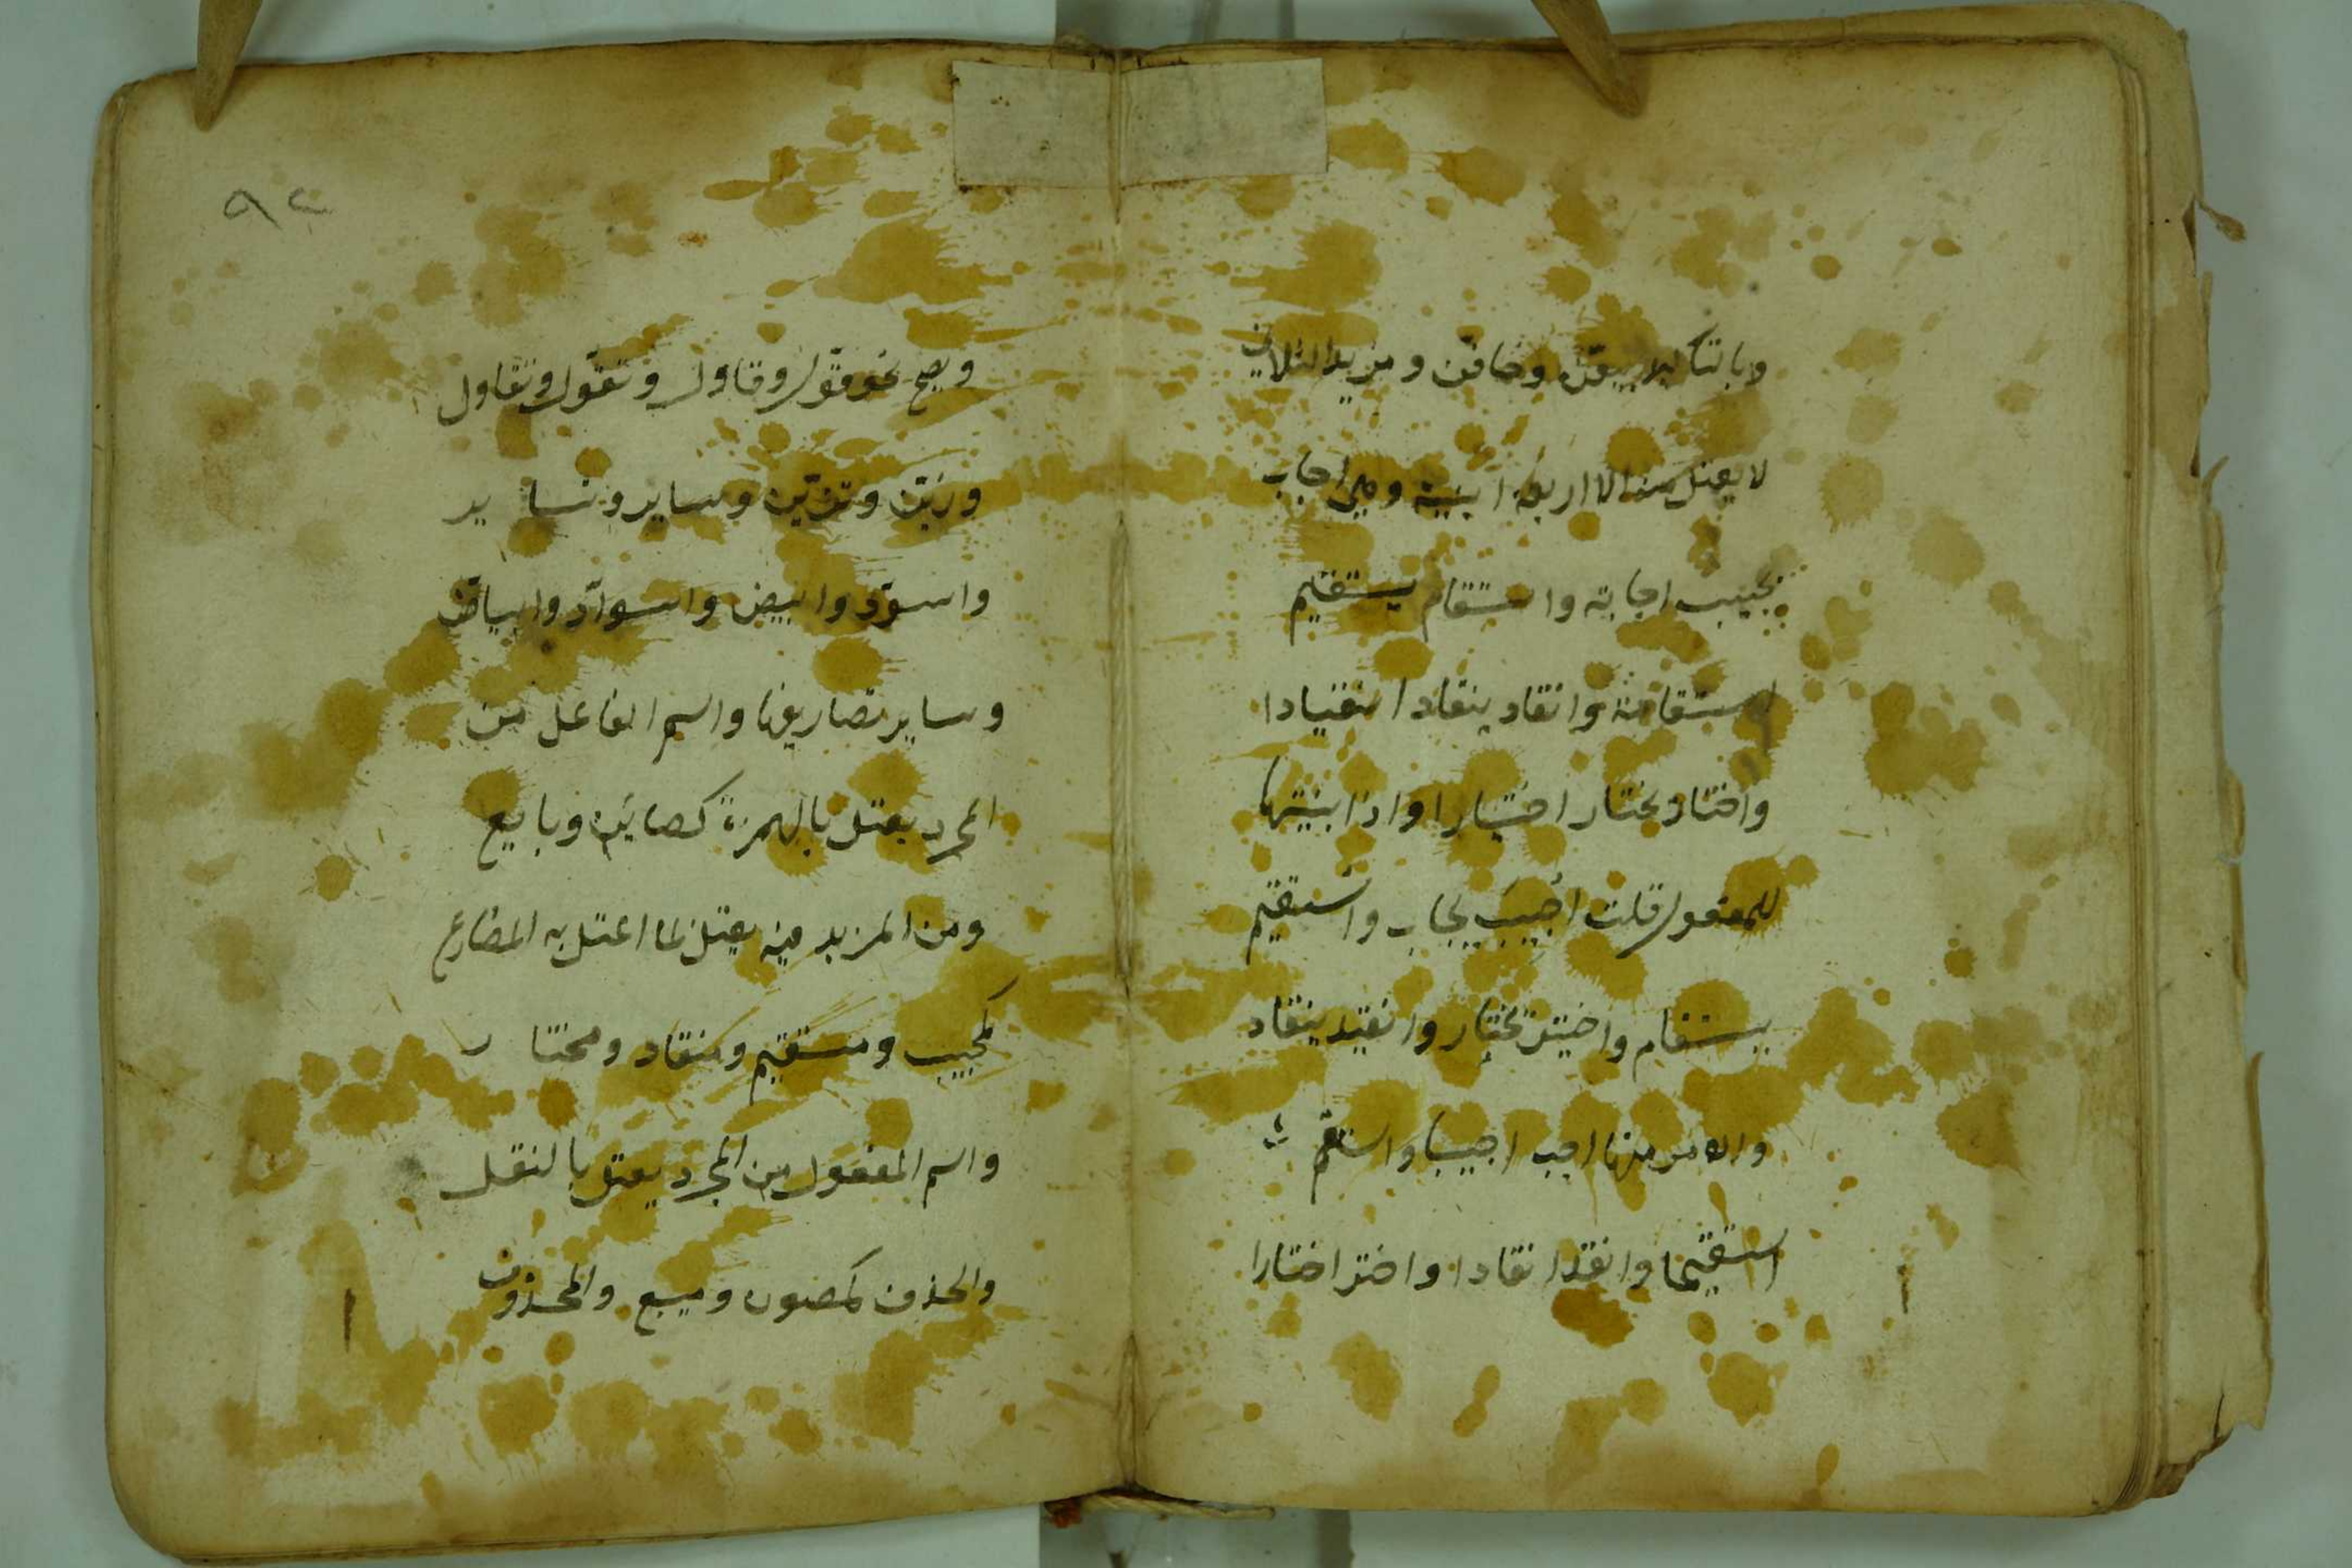 وبالتاكيد بيعن وخافن ومزيد الثلاثي
لا يعتل منه الا اربعة ابنية وهي اجاب
يجيب اجابة واستقام يستقيم
استقامة وانقاد ينقاد انقيادا
واختار يختار اختيارا واذا بنيتها
للمفعول قلت اجيب يجاب واستقيم
يستقام واختير يختار وانقيد ينقاد
والامر منها اجب اجيبا واستقم
استقيما وانقد انقادا واختر اختارا
٩٢
ويصح نحو قوّل وقاول وتقوّل وتقاول
وزيّن وتزيّن وساير وتساير
واسودّ وابيض واسوادّ وابياضّ
وساير تصاريفها واسم الفاعل من
المجرد يعتل بالهمزة كصاين وبايع
ومن المزيد فيه يعتل بما اعتل به المضارع
كمجيب ومستقيم ومنقاد ومختار
واسم المفعول من المجرد يعتل بالنقل
والحذف كمصون ومبيع والمحذوف